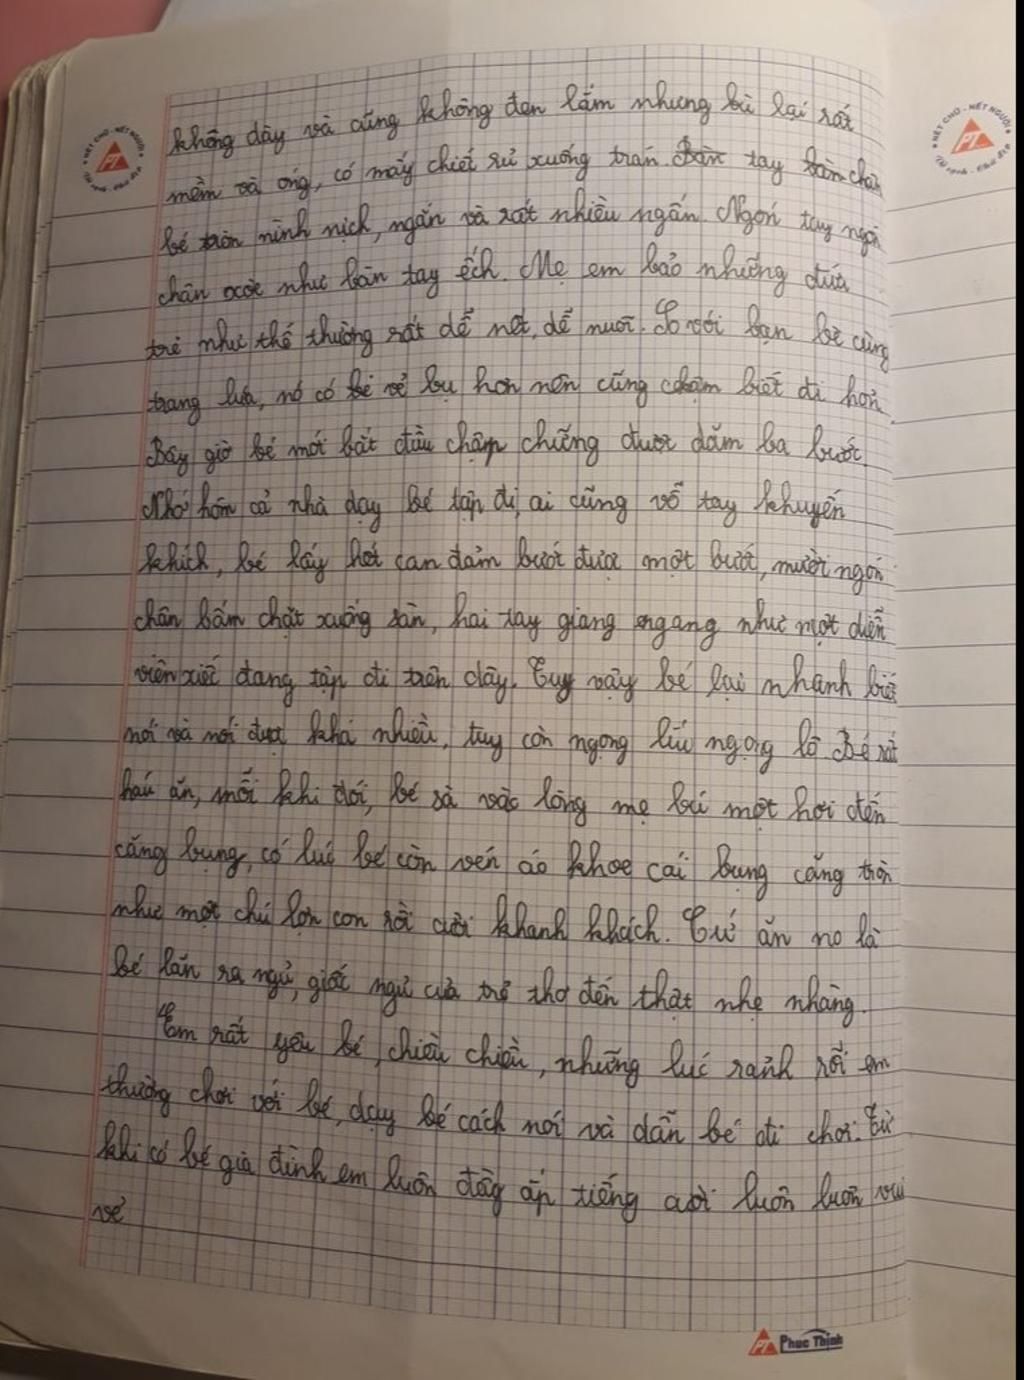 không dày và cũng không đen lắm nhưng bù lại rất
mềm và óng, có mấy chiếc rủ xuống trán. Bàn tay bàn chân
bé tròn nình nịch, ngắn và rất nhiều ngấn. Ngón tay ngón
chân xòe như bàn tay ếch. Mẹ em bảo những đứa
trẻ như thế thường rất dễ nết, dễ nuôi. So với bạn bè cùng
trang lứa, nó có bẻ vẻ bụ hơn nên cũng chậm biết đi hơn.
Bây giờ bé mới bắt đầu chập chững được dăm ba bước.
Nhớ hôm cả nhà dạy bé tập đi, ai cũng vỗ tay khuyến
khích, bé lấy hết can đảm bước được một bước, mười ngón
chân bấm chặt xuống sàn, hai tay giang ngang như một diễn
viên xiếc đang tập đi trên dây. Tuy vậy bé lại nhanh biết
nói và nói được khá nhiều, tuy còn ngọng líu ngọng lô. Bé rất
háu ăn, mỗi khi đói, bé sà vào lòng mẹ bú một hơi đến
căng bụng, có lúc bé còn vén áo khoe cái bụng căng tròn
như một chú lợn con rồi cười khanh khách. Cứ ăn no là
bé lăn ra ngủ, giấc ngủ của trẻ thơ đến thật nhẹ nhàng.
Em rất yêu bé, chiều chiều, những lúc rảnh rỗi em
thường chơi với bé, dạy bé cách nói và dẫn bé đi chơi. Từ
khi có bé gia đình em luôn đầy ắp tiếng cười luôn luôn vui
vẻ
NÉT CHỮ - NẾT NGƯỜI
PT
NÉT CHỮ - NẾT NGƯỜI
PT
PT Phuc Thinh